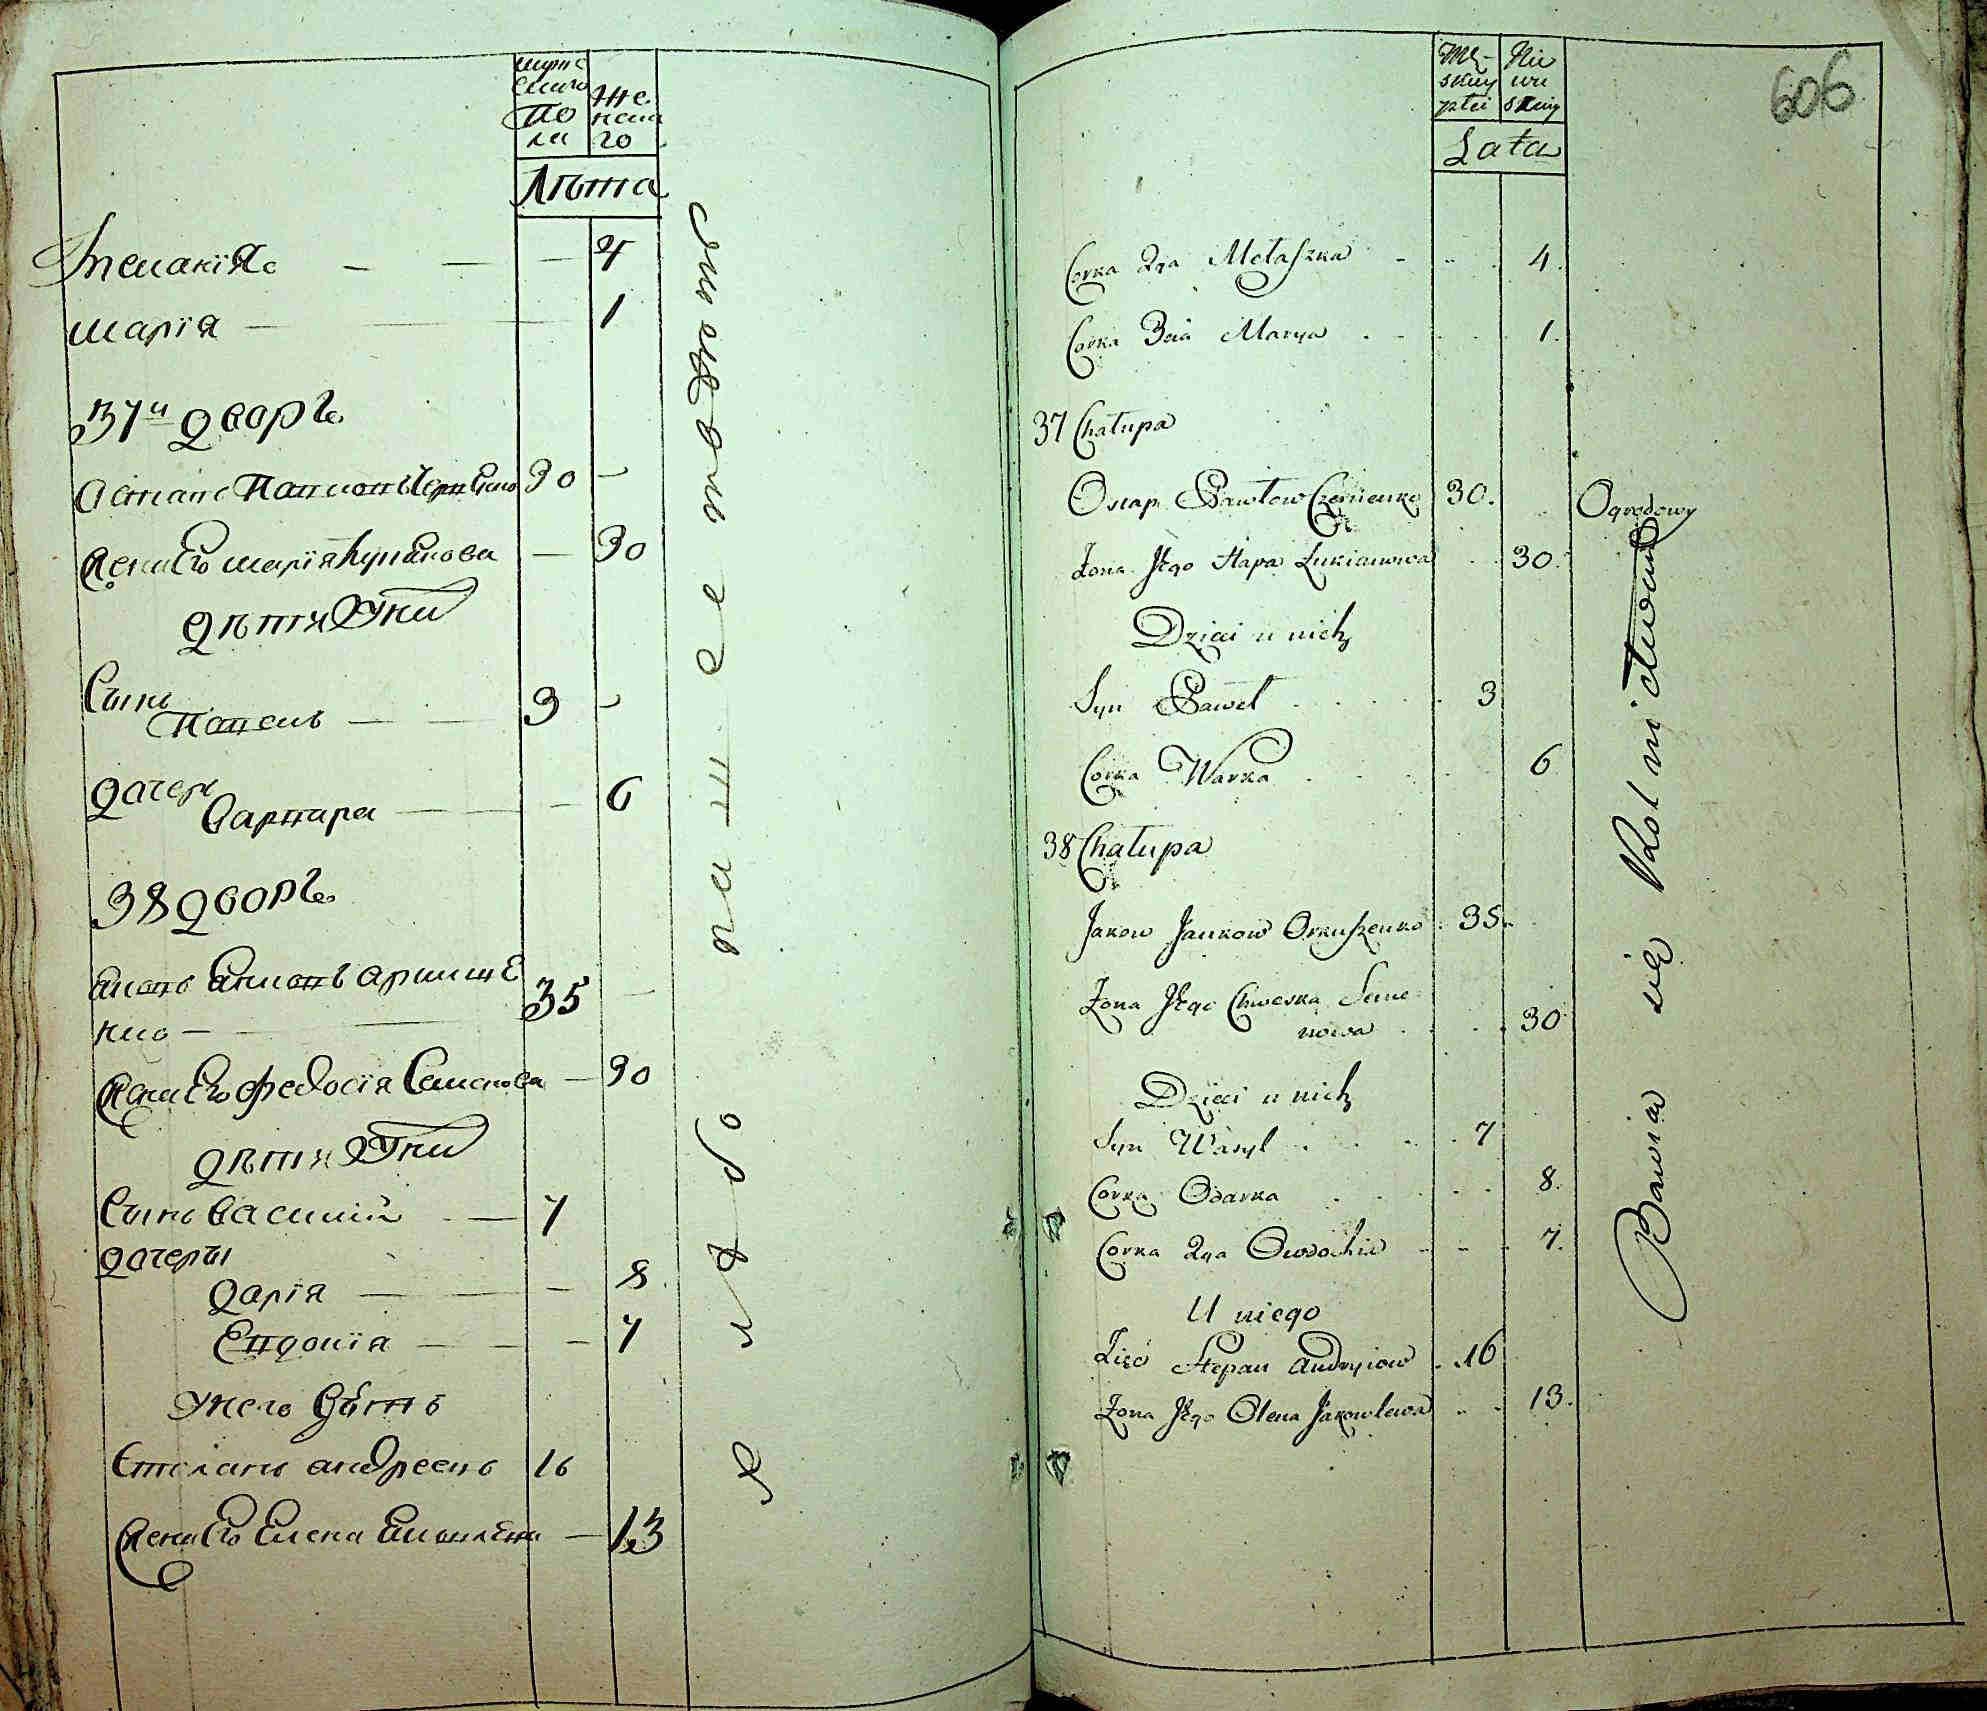 мужс
скаго
по
ла
Же
нска
го
Лѣта
Меланія 4
марія 1
37й дворъ
Остапъ Павловъ 30
жена Его марія Лукянова 30
дѣти у ни
Сынъ
Павелъ 3
дочерь
варвара 6
38 дворъ
35
жена Его феdосія Семенова 30
дѣти у ни
Сынъ василій 7
дочеры
дарія 8
Евдокія 7
У него зять
Степанъ андреевъ 16
жена Его Елена Яковлева 13
хлѣбопашествомъ
606
Mę-
skiey
płci
Nie
wie
skiey
Lata
Corka 2ga Melaszka 4.
Corka 3cia Marya 1.
37 Chałupa
Ostap Pawłow 30. Ogrodowy
Żona Jego Hapa Łukianowa 30.
Dzieci u nich
Syn Paweł 3
Corka Warka 6
38 Chałupa
Jakow Jankow Orkuszenko 35.
Żona Jego Chweska Seme-
nowa 30
Dzieci u nich
Syn Wasyl 7
Corka Odarka 8.
Corka 2ga Owdochia 7.
U niego
Zięć Stepan Andryiow 16
Żona Jego Olena Jakowlewa 13.
Bawia się Rolnictwem